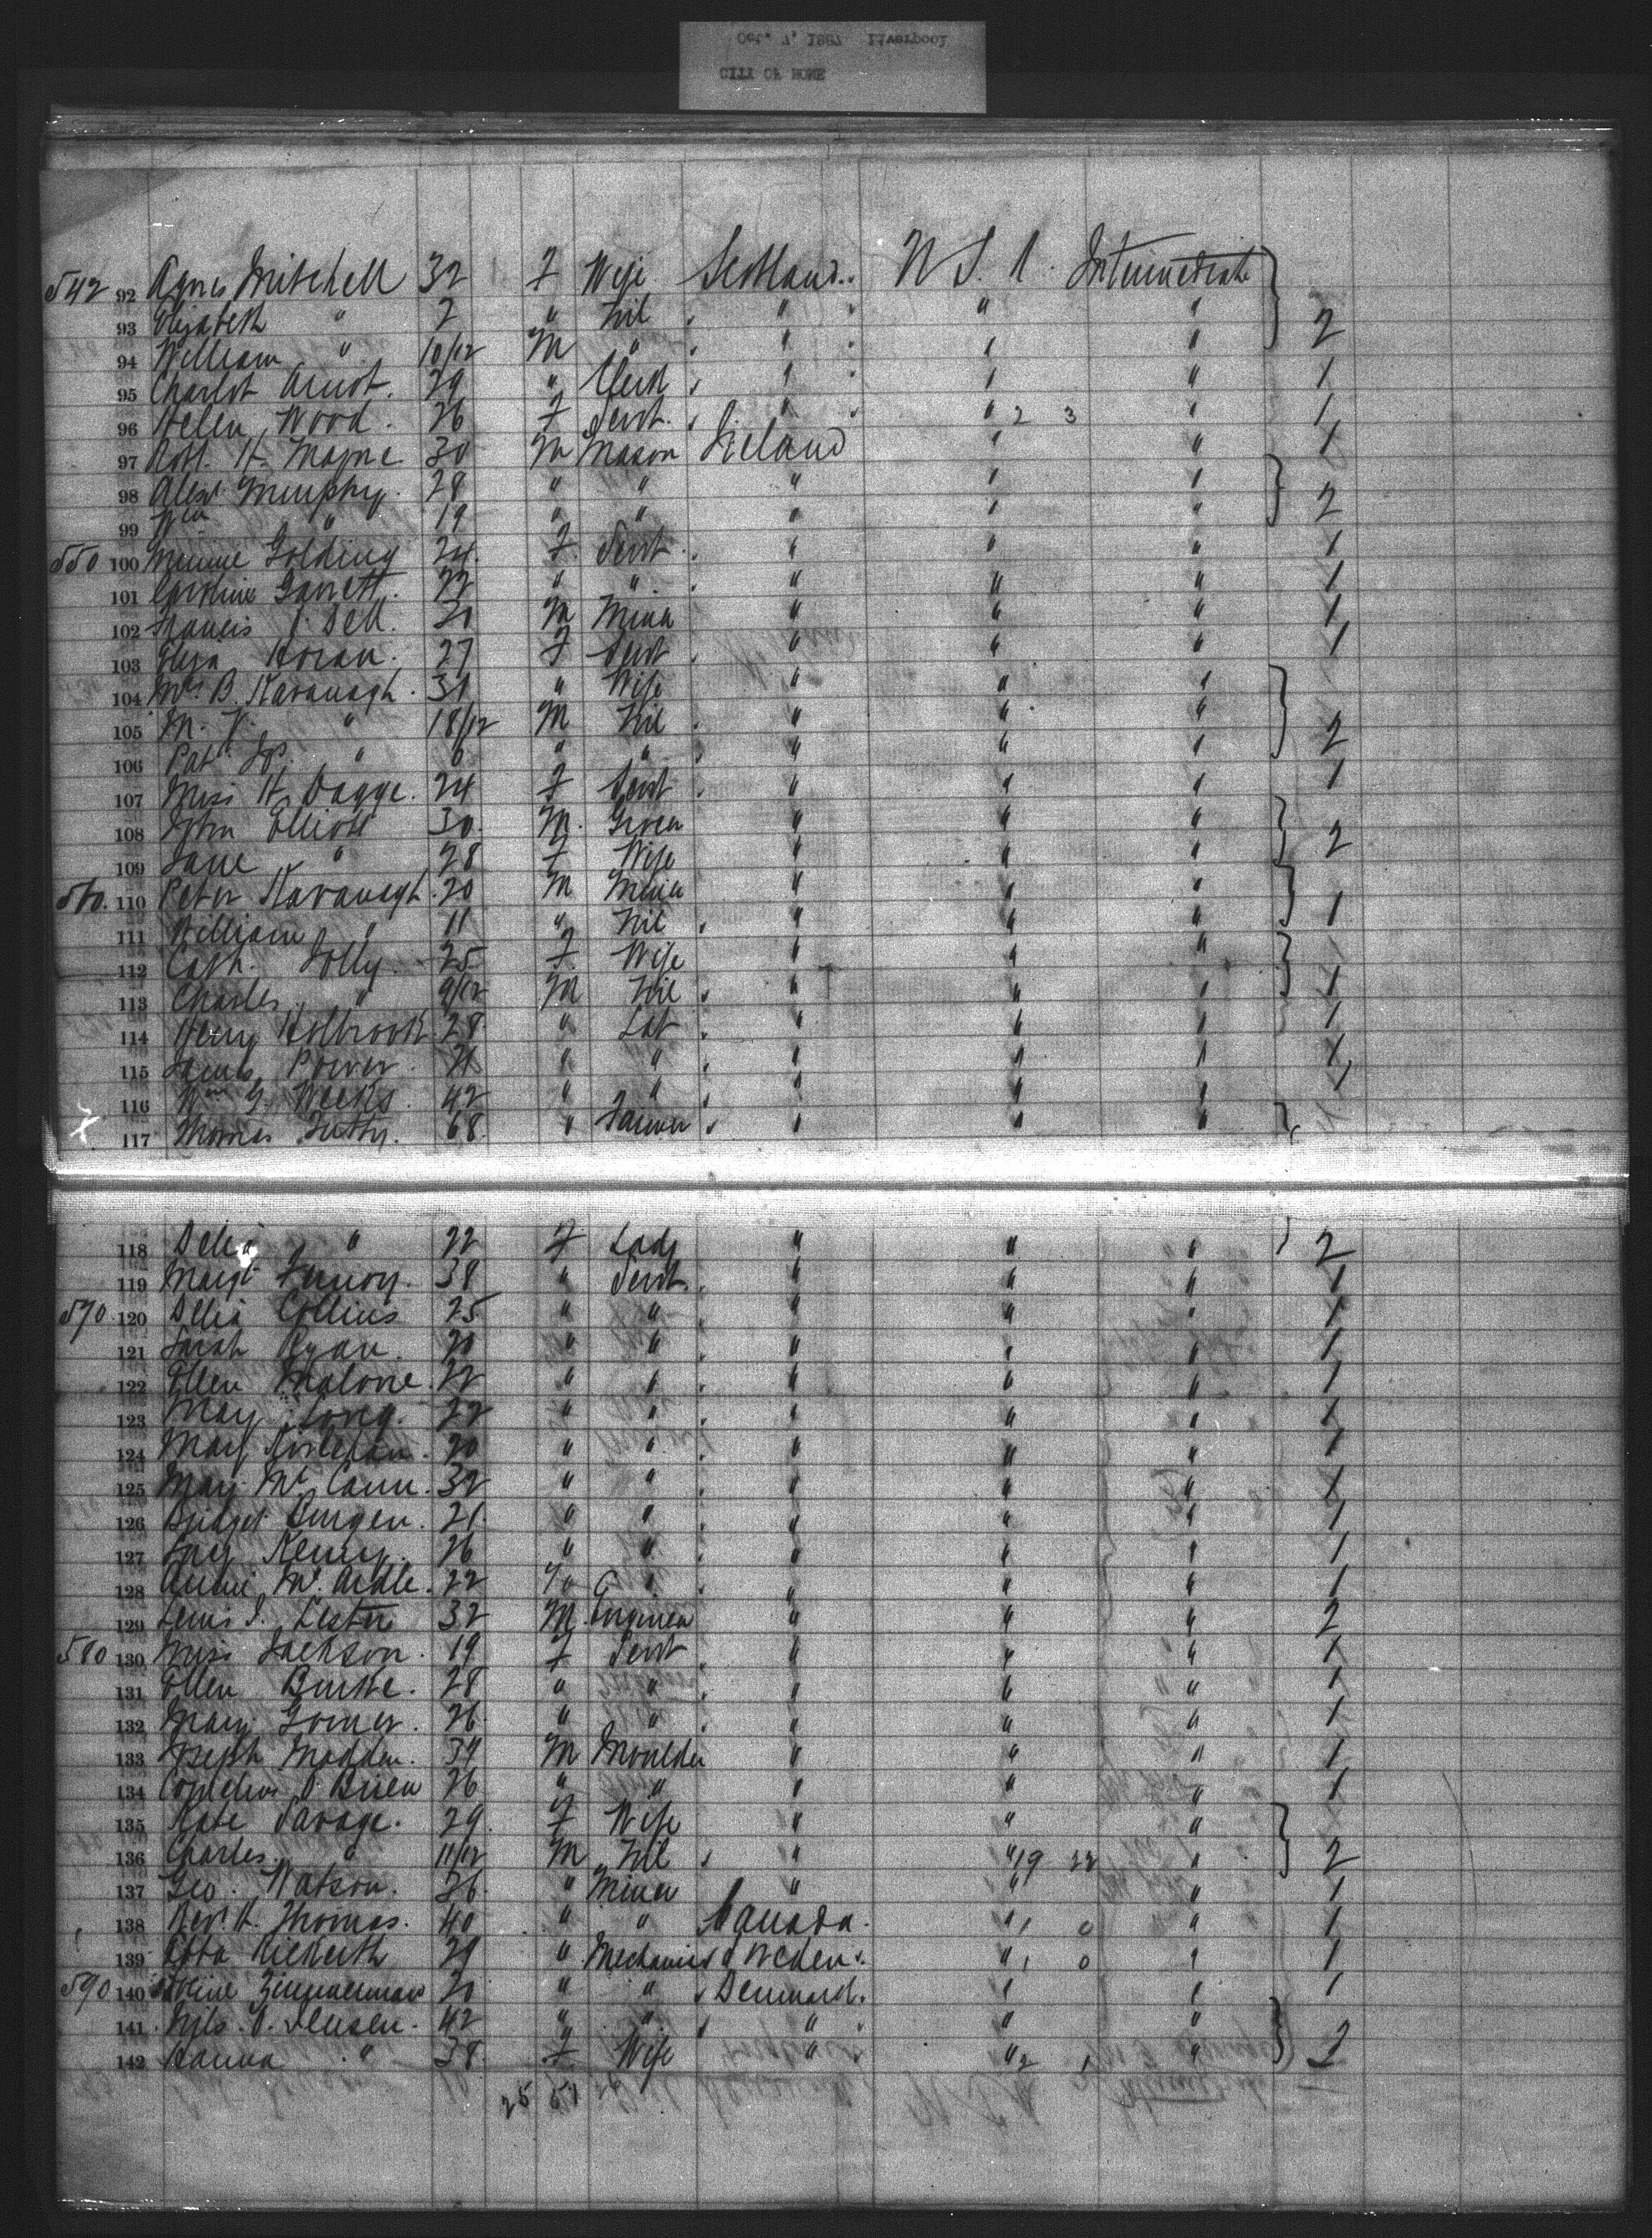 Oct. 7, 1887 Liverpool
CITY OF ROME
542 92 Agnes Mitchell 32 F Wife Scotland. U S. A. Intermediate
93 Elizabeth " 2 " Nil " " " 2
94 William " 10/12 M " " " "
95 Charlot Arnot. 29 " Clerk " " " 1
96 Helen Wood. 26 F Servt. " " 2 3 " 1
97 Robt. H. Mayne 30 M Mason Ireland " " 1
98 Alexr. Murphy. 28 " " " " "
99 Wm " 19 " " " " " 2
550 100 Minnie Golding 24. F. Servt. " " " 1
101 Caroline Garrett. 22 " " " " " 1
102 Francis J. Dell. 30 M " " " 1
103 Eliza Horan. 27 F Servt " " " 1
104 Mrs B. Kavanagh. 31 " Wife " " "
105 M. " 18/12 M Nil " " " 2
106 Pat " 6 " " " " "
107 Miss H. Dagge. 24 F Servt. " " " 1
108 John Elliott 30. M. " " "
109 Jane " 28 F Wife " " " 2
560. 110 Peter Kavanagh. 20 M " " "
111 William " 11 " Nil. " " " 1
112 Cath. Jolly. 25 F. Wife " " "
113 Charles " 9/12 M Nil " " " 1
114 Henry Holbrook 28 " Lab " " " 1
115 James Power. " " " " " 1
116 Wm G. Weeks. 42 " " " " "
117 Thomas 68. " Farmer " " "
118 Delia " 22 F Lady " " " 2
119 Margt. 38 " Servt. " " " 1
570. 120 Delia Collins 25 " " " " " 1
121 Sarah Ryan. 20 " " " " " 1
122 Ellen Malone. 22 " " " " " 1
123 Mary Long. 22 " " " " " 1
124 Mary 20 " " " " " 1
125 Mary Mc Cann. 32 " " " " " 1
126 Bridget 21. " " " " " 1
127 Kenny. 26 " " " " " 1
128 Annie Mc Ardle. 22 " " " " " 1
129 32 M. Engineer " " " 2
580 130 Miss Jackson. 19 F Servt " " " 1
131 Ellen Burke. 28 " " " " " 1
132 Mary 26. " " " " " 1
133 Joseph Madden. 34 M Moulder " " " 1
134 Cornelius O'Brien 26 " " " " " 1
135 Kate Savage. 29. F Wife " " "
136 Charles " 11/12 M Nil " " 19 22 " 2
137 Geo. Watson. 36. " Miner " " " 1
138 H. Thomas. 40 " " Canada. " 1 0 " 1
139 29 " Mechanics Sweden. " 1 0 " 1
590 140 Zimmerman 30 " " Denmark. " " 1
141 Nils. Jensen. 42 " " " " "
142 Hanna " 38. F Wife " " 2 1 " 2
25 51